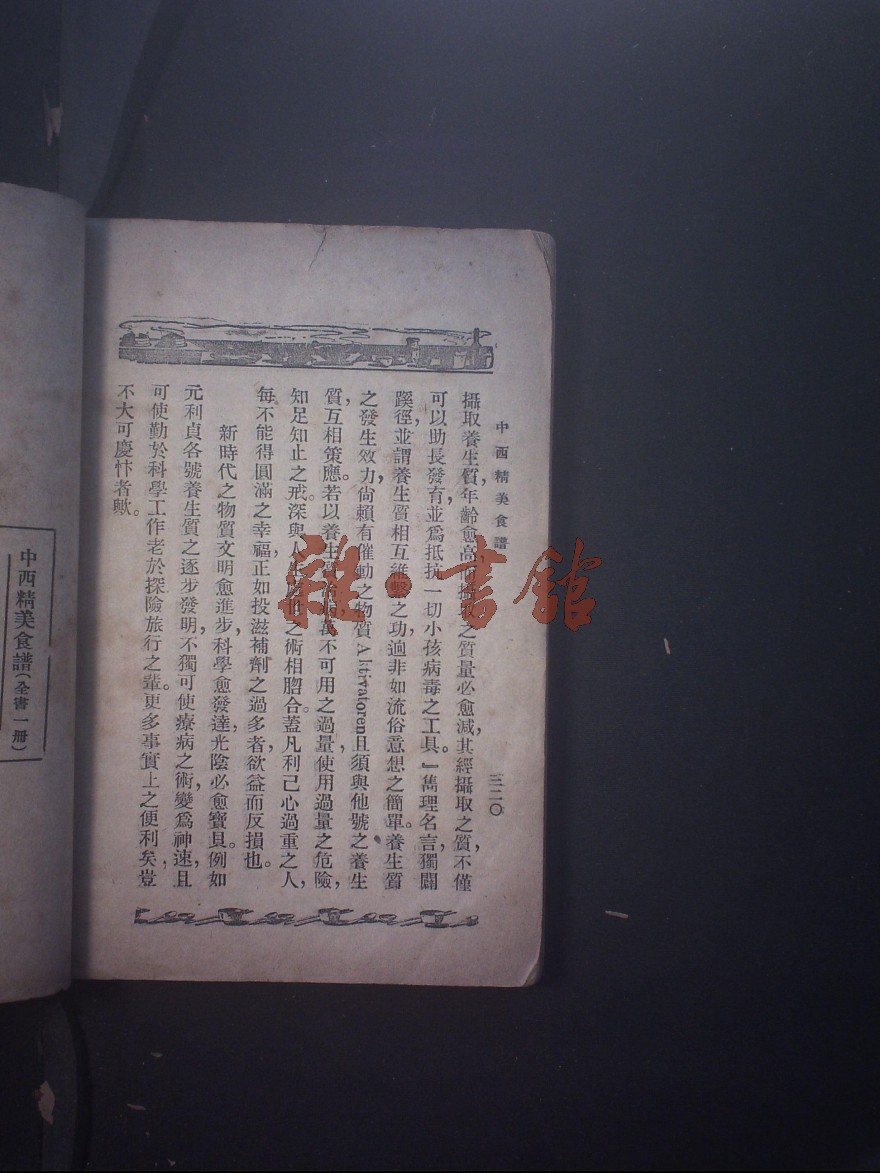 中西精美食譜
三二〇
攝取養生質，年齡愈高，而攝取之質量必愈減，其經攝取之質，不僅
可以助長發育，並爲抵抗一切小孩病毒之工具。』雋理名言，獨闢
蹊徑，並謂養生質相互維繫之功，逈非如流俗意想之簡單。養生質
之發生效力，尙賴有催動之物質Aktivatoren且須與他號之養生
質，互相策應。若以養生質治病，萬不可用之過量，使用過量之危險，
知足知止之戒，深與人生處世之術相脗合。蓋凡利己心過重之人，
每不能得圓滿之幸福，正如投滋補劑之過多者，欲益而反損也。
新時代之物質文明愈進步，科學愈發達，光陰必愈寶貝。例如
元利貞各號養生質之逐步發明，不獨可使療病之術，變爲神速，且
可使勤於科學工作，老於探險旅行之輩。更多事實上之便利矣，豈
不大可慶忭者歟。
中西精美食譜（全書一册）
雜·書館